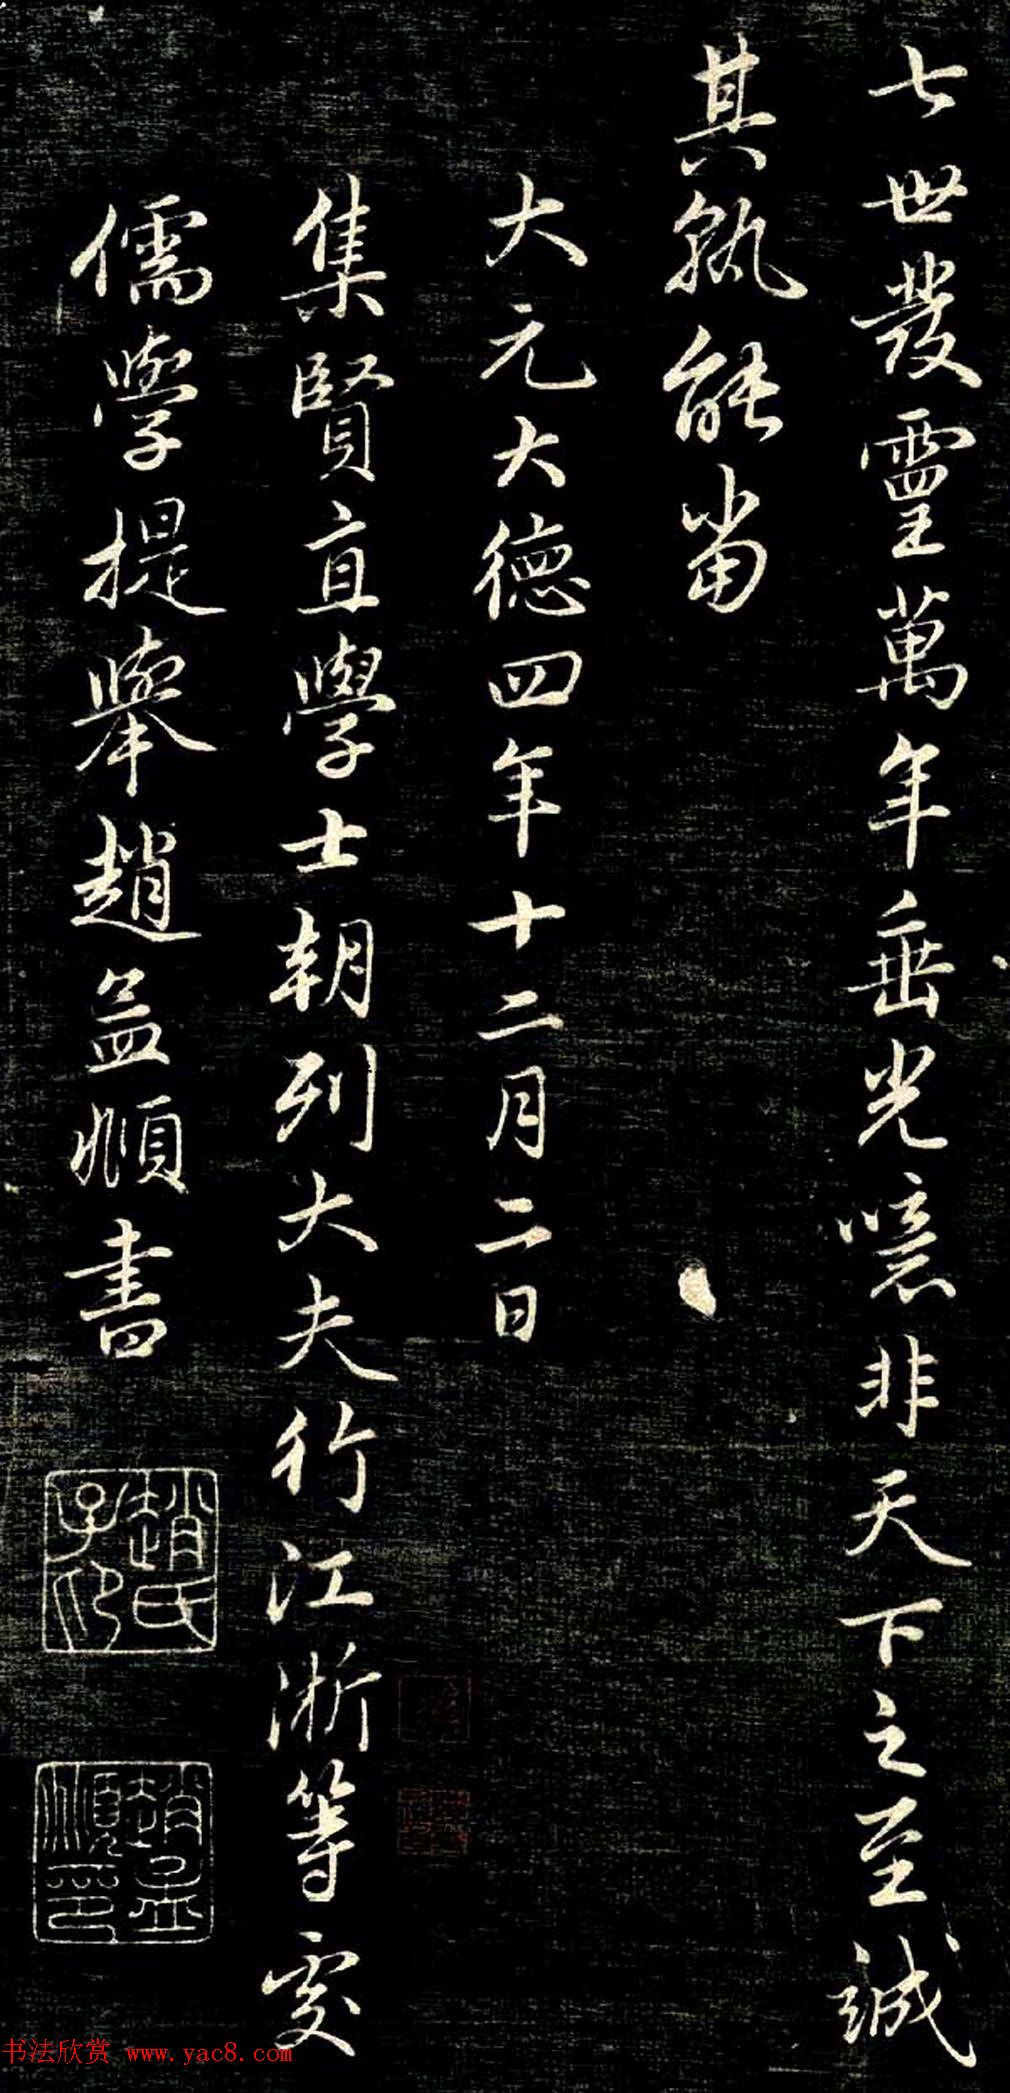 七世發靈萬年垂光噫非天下之至誠
其孰能當
大元大德四年十二月二日
集賢直學士朝列大夫行江浙等處
儒學提舉趙孟頫書
趙氏子昂
趙孟頫印
书法欣赏 www.yac8.com